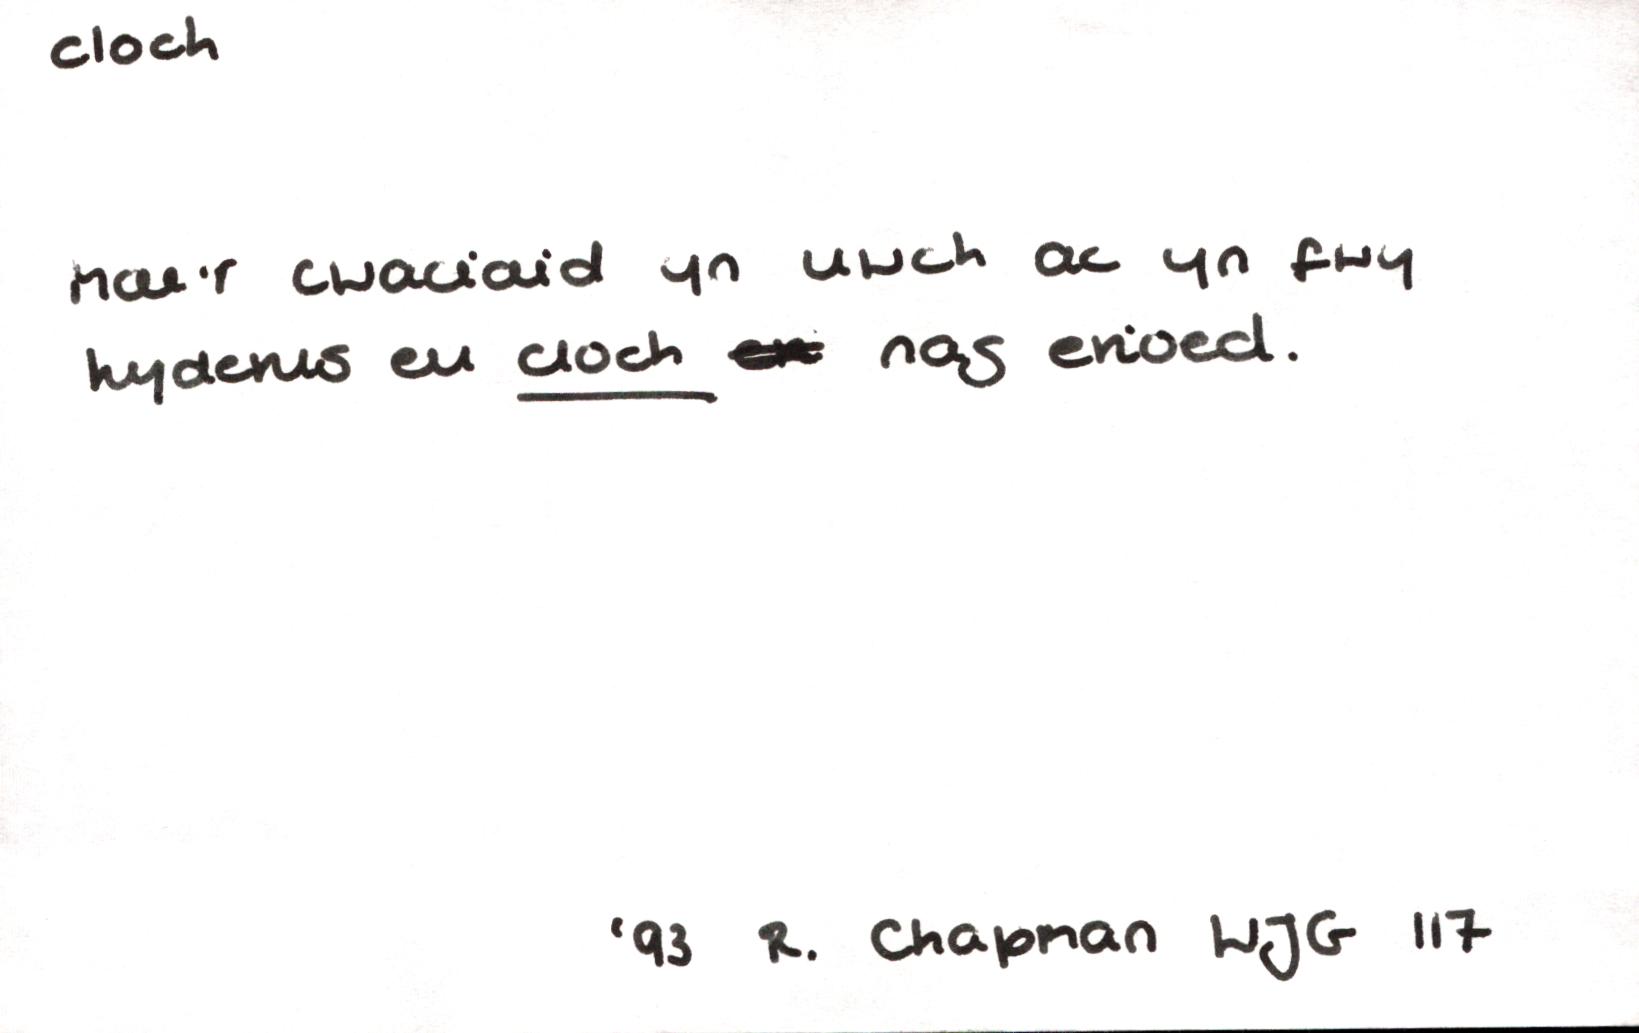 cloch
Mae'r cwaciaid yn uwch ac yn fwy
hyderus eu cloch nag erioed.
'93 R. Chapman WJG 117